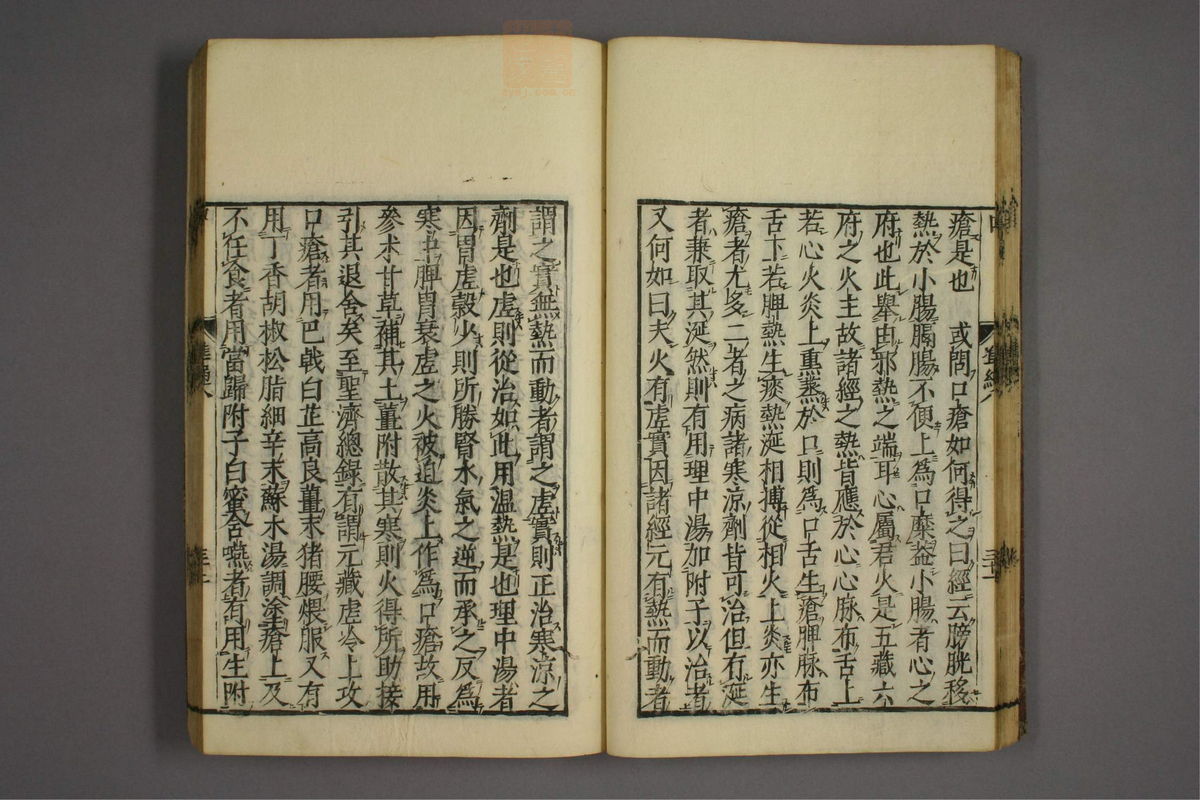 瘡是也　或問口瘡如何得之曰經云膀胱移
熱於小腸膈腸不便上爲口糜蓋小腸者心之
府也此舉由邪熱之端耳心屬君火是五藏六
府之火主故諸經之熱皆應於心心脉布舌上
若心火炎上熏蒸於口則爲口舌生瘡脾脉布
舌下若脾熱生痰熱涎相搏從相火上炎亦生
瘡者尤多二者之病諸寒涼劑皆可治但有涎
者兼取其涎然則有用理中湯加附子以治者
又何如曰夫火有虛實因諸經元有熱而動者
謂之實無熱而動者謂之虛實則正治寒涼之
劑是也虛則從治如此用温熱是也理中湯者
因胃虛穀少則所勝腎水氣之逆而承之反爲
寒中脾胃衰虛之火被迫炎上作爲口瘡故用
參朮甘草補其土薑附散其寒則火得所助接
引其退舍矣至聖濟總錄有謂元藏虛冷上攻
口瘡者用巴戟白芷高良薑末猪腰煨服又有
用丁香胡椒松脂細辛末蘇木湯調塗瘡上及
不任食者用當歸附子白蜜含嚥者有用生附